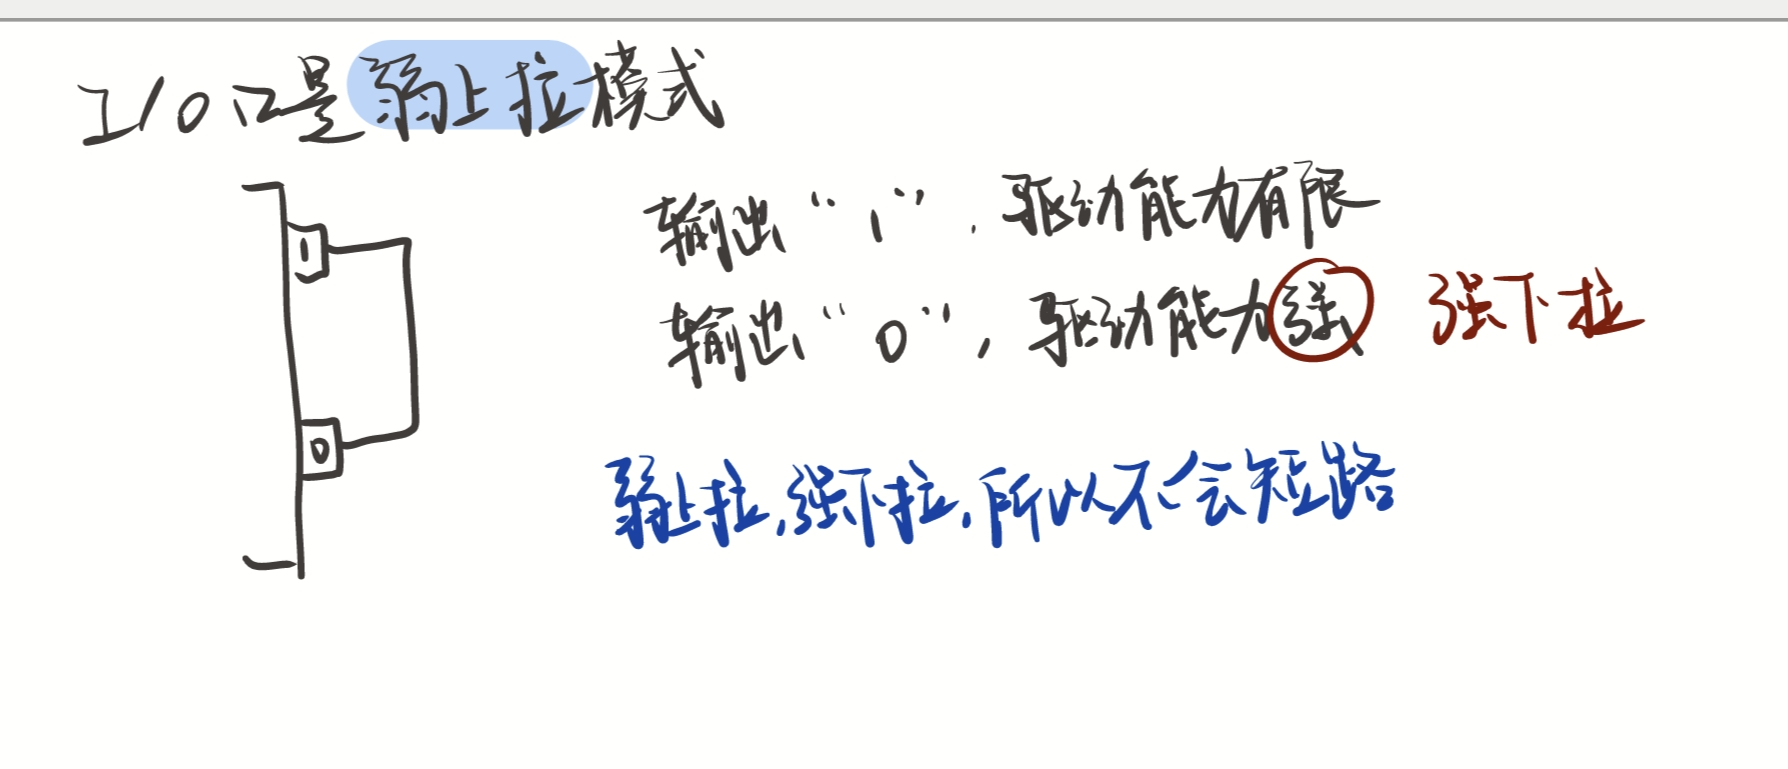 I/O口是弱上拉模式
输出“1”,驱动能力有限
1
输出“0”,驱动能力强 强下拉
0
弱上拉,强下拉,所以不会短路